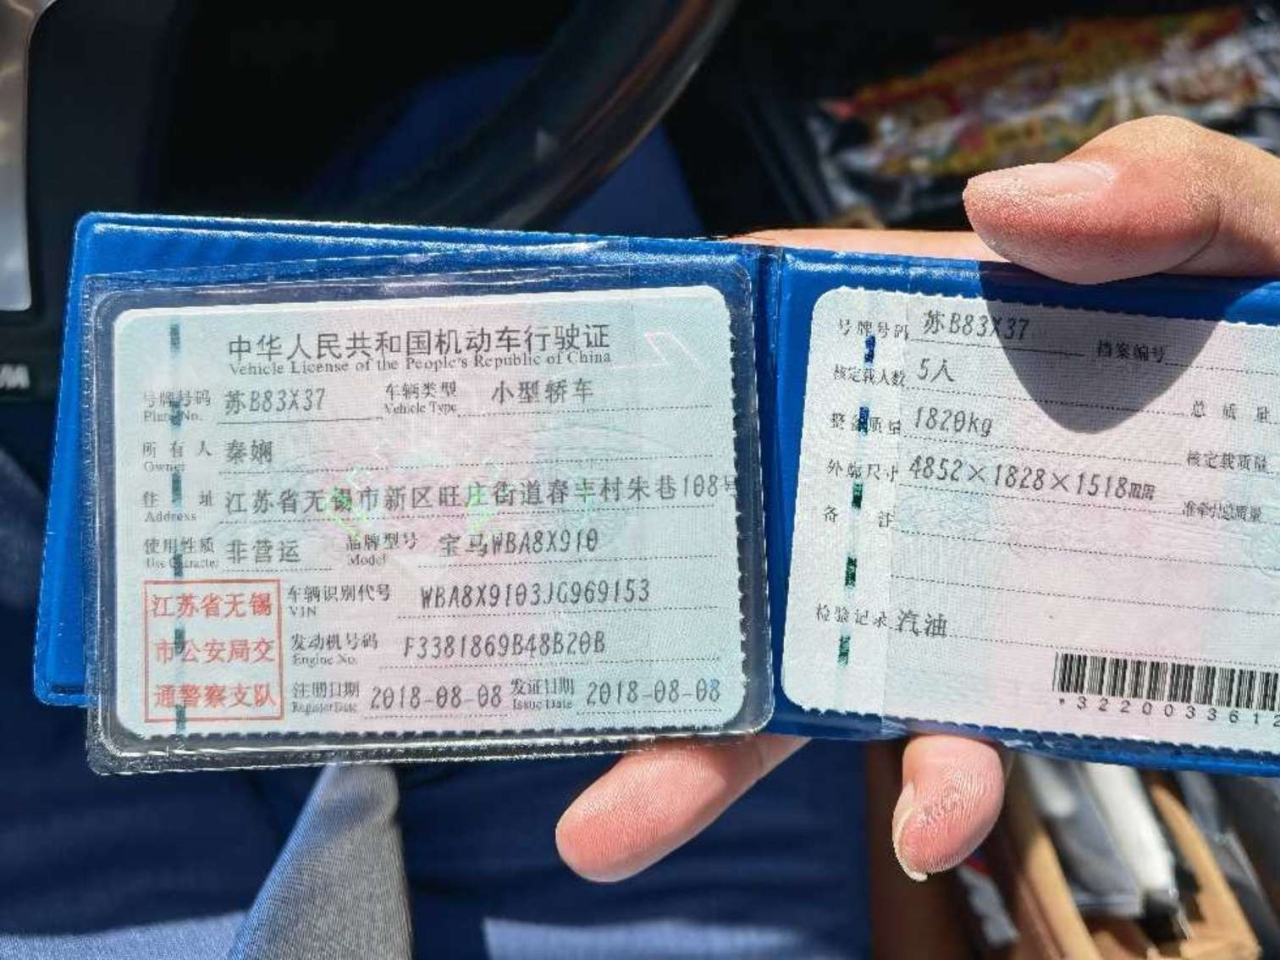 中华人民共和国机动车行驶证
Vehicle License of the People's Republic of China
号牌号码 苏B83X37 车辆类型 小型轿车
Plate No. Vehicle Type
所有人 秦娴
Owner
住址 江苏省无锡市新区旺庄街道春丰村朱巷108号
Address
使用性质 非营运 品牌型号 宝马WBA8X910
Use Character Model
江苏省无锡
市公安局交
通警察支队
车辆识别代号 WBA8X9103JG969153
VIN
发动机号码 F3381869B48B20B
Engine No.
注册日期 2018-08-08 发证日期 2018-08-08
Register Date Issue Date
号牌号码 苏B83X37 档案编号
核定载人数 5人 总质量
整备质量 1820kg 核定载质量
外廓尺寸 4852×1828×1518mm 准牵引总质量
备注
检验记录 汽油
*3220033612